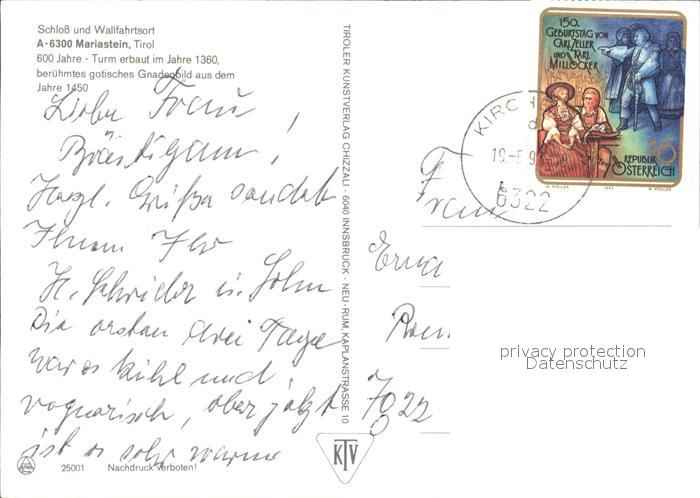 Schloß und Wallfahrtsort
A-6300 Mariastein, Tirol
600 Jahre - Turm erbaut im Jahre 1360,
berühmtes gotisches Gnadenbild aus dem
Jahre 1450
Liebe Frau
Bräutigam,
Herzl. Grüße sendet
Ihnen Ihr
H. Schneider u. Sohn
Die ersten drei Tage
war es kühl und
regnerisch, aber jetzt
ist es sehr warm
25001 Nachdruck verboten!
TIROLER KUNSTVERLAG CHIZZALI · 6040 INNSBRUCK · NEU-RUM, KAPLANSTRASSE 10
KTV
150.
GEBURTSTAG VON
CARL ZELLER
UND KARL
MILLÖCKER
REPUBLIK
ÖSTERREICH
1992
KIRCH
6322
Frau
Erna
7022
privacy protection
Datenschutz